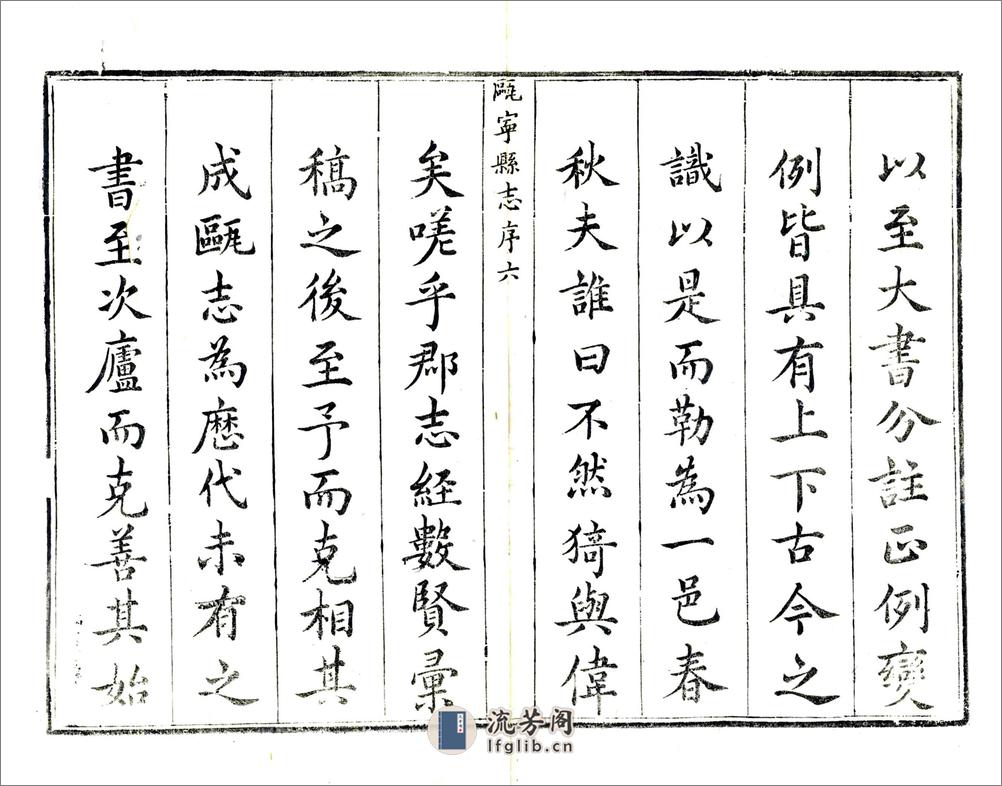 以至大書分註正例變
例皆具有上下古今之
識以是而勒為一邑春
秋夫誰曰不然猗與偉
甌寧縣志序六
矣嗟乎郡志経數賢彙
稿之後至予而克相其
成甌志為歷代未有之
書至次廬而克善其始
流芳阁
lfglib.cn